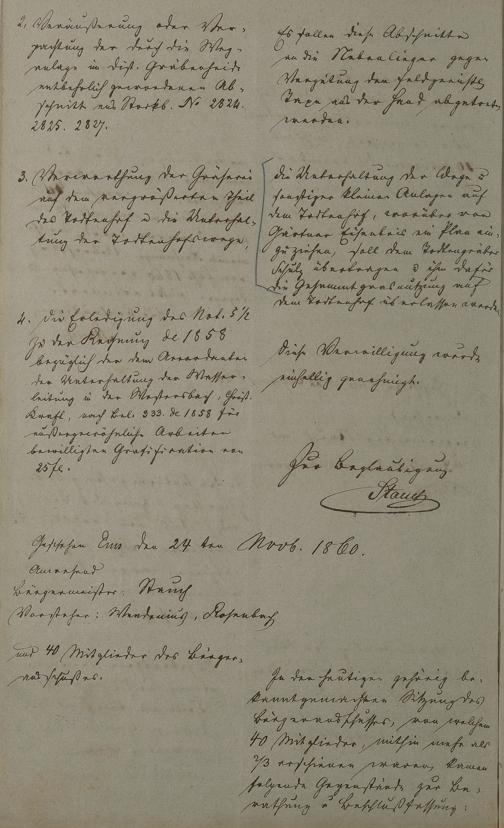 2, Veräußerung oder Ver-
pachtung der durch die Weg-
anlage in Dist. Grabenheide
entbehrlich gewordenen Ab-
schnitte aus Stockb. No 2824.
2825. 2827.
Es sollen diese Abschnitte
an die Nebenlieger gegen
Vergütung der feldgerichtl.
Taxe aus der Hand abgetreten
werden.
3. Verwerthung der Gräserei
auf dem vergrößerten Theil
des Todtenhof u die Unterhal-
tung der Todtenhofswege.
die Unterhaltung der Wege u
sonstiger kleiner Anlagen auf
dem Todtenhof, worüber von
Gärtner Eisenbeis ein Plan ein-
zuziehen, soll dem Todtengräber
Schütz übertragen u ihm dafür
die Gesammtgrasnutzung auf
dem Todtenhof überlassen werden
4. die Erledigung des Not. 5 1/2
zu der Rechnung de 1858
bezüglich der dem Accordanten
der Unterhaltung der Wasser-
leitung in der
Kraft, nach Bel. 333. de 1858 für
außergewöhnliche Arbeiten
bewilligten Gratification von
25 fl.
Diese Verwilligung wurde
einhellig genehmigt.
Zur Beglaubigung
Stauch
Geschehen Ems den 24 ten Novb. 1860.
Anwesend
Bürgermeister: Stauch
Vorsteher: Wendenius, Rosenbach
und 40 Mitglieder des Bürger-
ausschusses.
In der heutigen gehörig be-
kanntgemachten Sitzung des
Bürgerausschusses, von welchem
40 Mitglieder, mithin mehr als
2/3 erschienen waren, kamen
folgende Gegenstände zur Be-
rathung u Beschlußfassung: